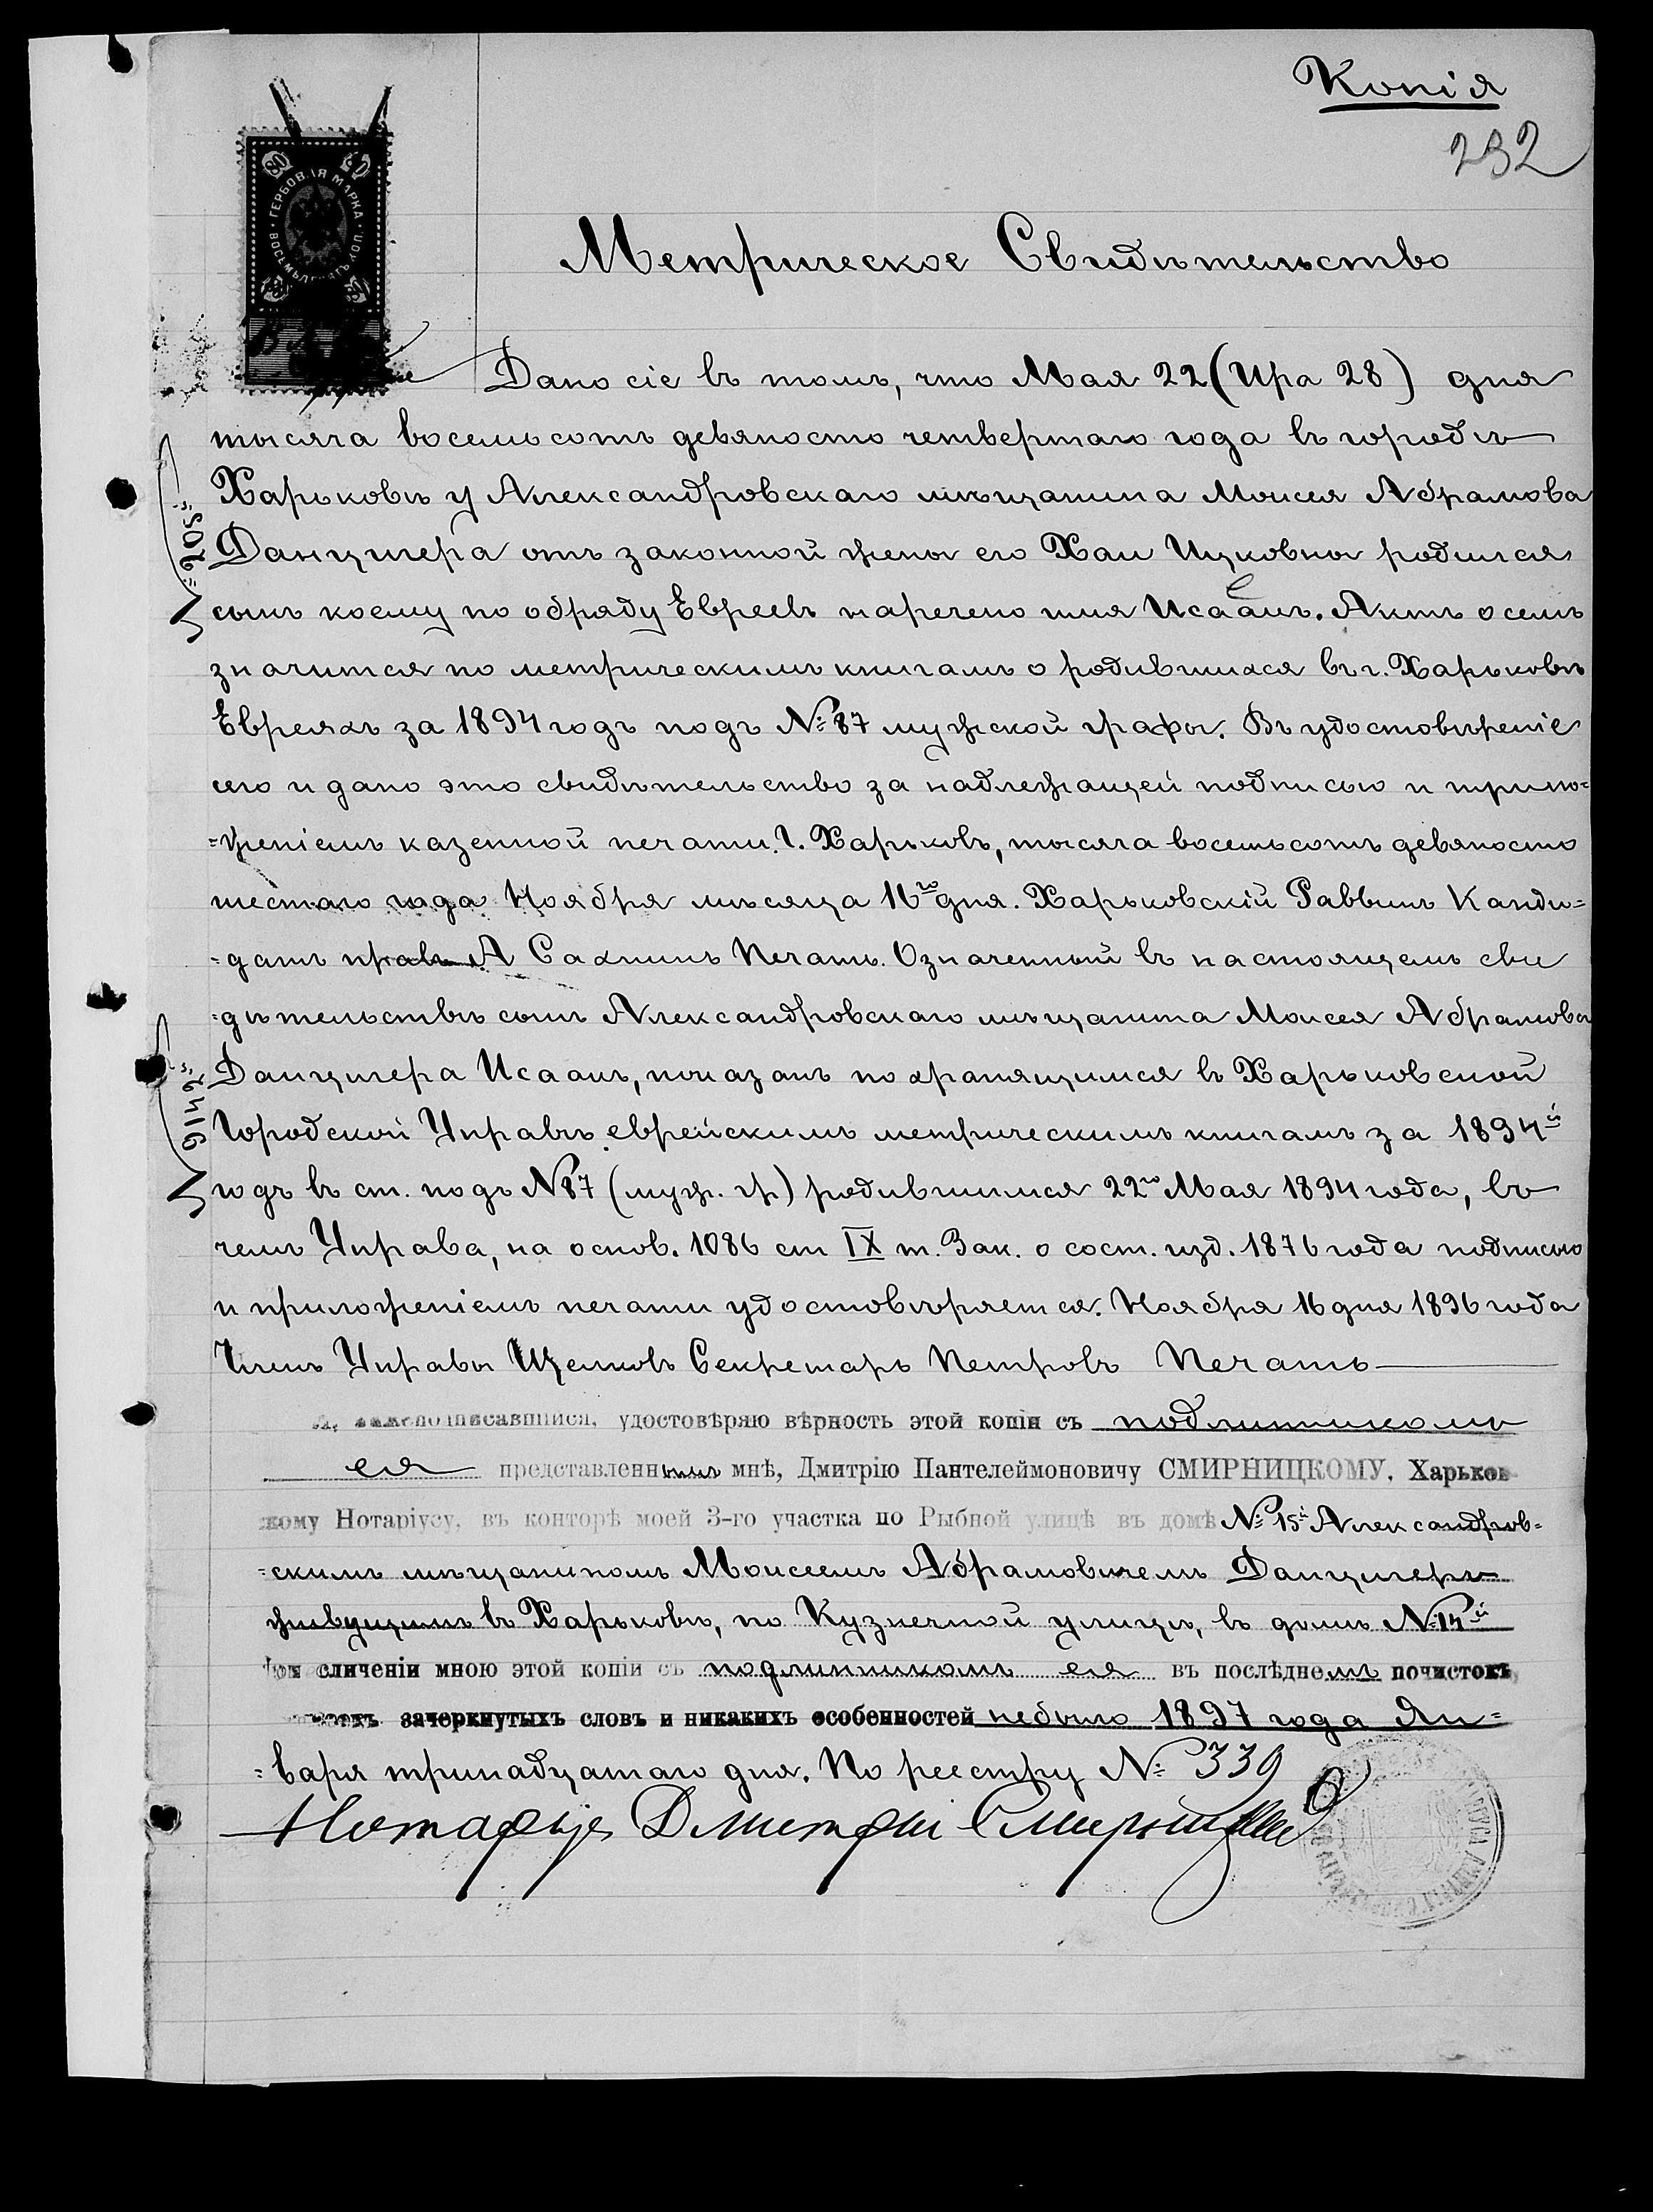 Копія
232
80
ГЕРБОВАЯ МАРКА
Метрическое Свидѣтельство
Дано сіе въ томъ, что Мая 22 (Ира 28) дня
тысяча восемьсотъ девяносто четвертаго года въ городѣ
Харьковѣ у Александровскаго мѣщанина Моисея Абрамова
Данцигера отъ законной жены его Хаи Ицковны родился
сынъ коему по обряду Евреевъ наречено имя Исаакъ. Актъ о семъ
значится по метрическимъ книгамъ о родившихся въ г. Харьковѣ
Евреяхъ за 1894 годъ подъ №87 мужской графы. Въ удостовѣреніе
сего и дано это свидѣтельство за надлежащей подписью и прило=
=женіемъ казенной печати. Г. Харьковъ, тысяча восемьсотъ девяносто
шестаго года Ноября мѣсяца 16го дня. Харьковскій Раввинъ Канди=
=датъ правъ А Сахнинъ Печать. Означенный въ настоящемъ сви
=дѣтельствѣ сынъ Александровскаго мѣщанина Моисея Абрамова
Данцигера Исаакъ, показанъ по хранящимся въ Харьковской
Городской Управѣ еврейскимъ метрическимъ книгамъ за 1894й
годъ въ ст. подъ №87 (муж. гр) родившимся 22го Мая 1894 года, въ
чемъ Управа, на основ. 1086 ст IX т. Зак. о сост. изд. 1876 года подписью
и приложеніемъ печати удостовѣряетъ ся. Ноября 16 дня 1896 года
Членъ Управы Щелковъ Секретарь Петровъ Печать
"205"
"9142"
Я, нижеподписавшійся, удостовѣряю вѣрность этой копіи съ подлинникомъ
ея представленнымъ мнѣ, Дмитрію Пантелеймоновичу СМИРНИЦКОМУ, Харьков
скому Нотаріусу, въ конторѣ моей 3-го участка по Рыбной улицѣ въ домѣ №15й Александров=
=скимъ мѣщаниномъ Моисеемъ Абрамовичемъ Данцигеръ
живущимъ въ Харьковѣ, по Кузнечной улицѣ, въ домѣ №14й
При сличеніи мною этой копіи съ подлинникомъ ея въ послѣднемъ почистокъ,
зачеркнутыхъ словъ и никакихъ особенностей небыло 1897 года Ян=
=варя тринадцатаго дня. По реестру № 339
Нотаріусъ Дмитрій Смирницкій